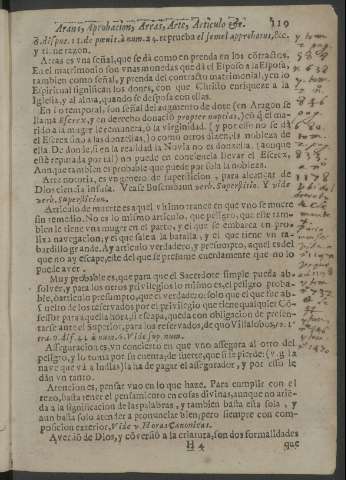 Aradas, Aprobacion, Arras, Arte, Articulo 119
8. dispue. 11. de pœnit. à num. 24. et prueba el semel approbatus, &c.
y ti. ne razon.
Arras es vna señal, que se dà como en prenda en los cõtractos.
En el matrimonio son vnas monedas que dà el Esposo à la Esposa,
tambien como señal, y prenda del contracto matrimonial, y en lo
Espiritual significan los dones, con que Christo enriquece à la
Iglesia, y al alma, quando se desposa con ellas.
En lo temporal, son señal del augmento de dote (en Aragon se
llama Escreix, y en derecho donatio propter nuptias,) cõ q̃ el ma-
rido à la muger la remunera, ò la virginidad. (y por esso no se dà
el Escreix sino à las doncellas,) ò como otros dizen la nobleza de
ella De donde, si en la realidad la Novia no es doncella, (aunque
esté reputada por tal) no puede en conciencia llevar el Escreix,
Aunque tambien es probable que puede por sola la nobleza.
Arte notoria, es vn genero de supersticion, para alcançar de
Dios ciencia infusa. Vease Busembaun verb. Superstitio. Y vide
verb. Supersticion.
Articulo de muerte es aquel vltimo trance en que vno se muere
sin remedio. No es lo mismo articulo, que peligro, que este tam-
bien le tiene vna muger en el parto, y el que se embarca en pro-
lixa navegacion, y el que sale à la batalla, y el que tiene vn ta-
bardillo grande. Ay articulo verdadero, y presumpto, aquel es del
que no ay escape, este del que se presume cuerdamente que no lo
puede aver.
Muy probable es, que para que el Sacerdote simple pueda ab-
solver, y para los otros privilegios lo mismo es, el peligro proba-
ble, ò articulo presumpto, que el verdadero: solo que el que fue ab-
suelto de los reservados por el privilegio que tiene qualquier Cõ-
fessor para aquella hora, si escapa, queda con obligacion de presen-
tarse ante el Superior, para los reservados, de quo Villalobos, to. 1.
tra. 9. dif. 41 à num. 6. Vide 59 num.
Asseguracion es, vn concierto en que vno assegura al otro del
peligro, y lo toma por su cuenta; de suerte, que si se pierde (v.g. la
nave que và à Indias) la ha de pagar el assegurador, y por esso le
dàn vn tanto.
Atencion es, pensar vno en lo que haze. Para cumplir con el
rezo, basta tener el pensamiento en cosas divinas, aunque no atiẽ-
da à la significacion de las palabras, y tambien basta esta sola, y
aun basta solo atender à pronunciar bien; pero siempre con com-
posicion exterior. Vide v. Horas Canonicas.
Aversiõ de Dios, y cõversiõ à la criatura, son dos formalidades
H 4 que